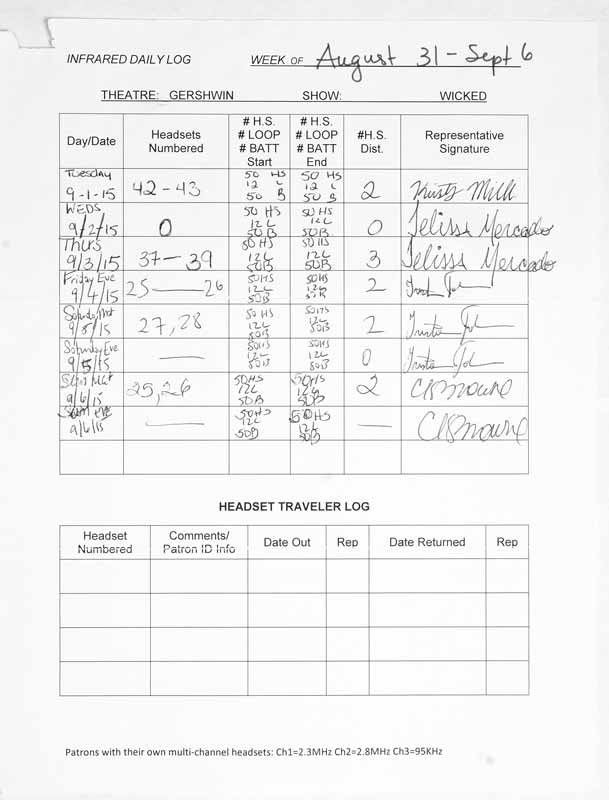 INFRARED DAILY LOG WEEK OF August 31 - Sept 6
THEATRE: GERSHWIN SHOW: WICKED
Day/Date Headsets Numbered # H.S. # LOOP # BATT Start # H.S. # LOOP # BATT End #H.S. Dist. Representative Signature
TUESDAY 9-1-15 42-43 50 HS 12 L 50 B 50 HS 12 L 50 B 2
WEDS 9/2/15 0 50 HS 12L 50B 50 HS 12L 50B 0 Mercado
Thurs 9/3/15 37-39 50HS 12L 50B 50HS 12L 50B 3 Mercado
Friday Eve 9/4/15 25-26 50HS 12L 50B 50HS 12L 2
Saturday Mat 9/5/15 27,28 50 HS 12L 50B 50HS 12L 50B 2
Saturday Eve 9/5/15 — 50HS 12L 50B 50HS 12L 50B 0
Sun Mat 9/6/15 25,26 50HS 12L 50B 50HS 12L 50B 2
Eve 9/6/15 — 50HS 12L 50B 50HS 12L 50B —
HEADSET TRAVELER LOG
Headset Numbered Comments/ Patron ID Info Date Out Rep Date Returned Rep
Patrons with their own multi-channel headsets: Ch1=2.3MHz Ch2=2.8MHz Ch3=95KHz